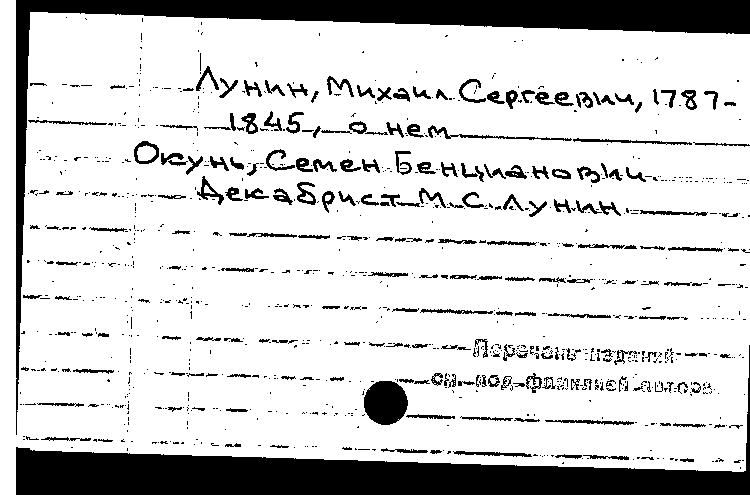 Лунин, Михаил Сергеевич, 1787-
1845, о нем
Окунь, Семен Бенцианович.
Декабрист М.С. Лунин.
Перечень изданий
см. под фамилией автора